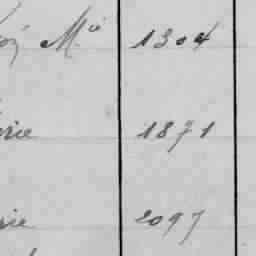 Mie 1304
rie 1871
rie 2097